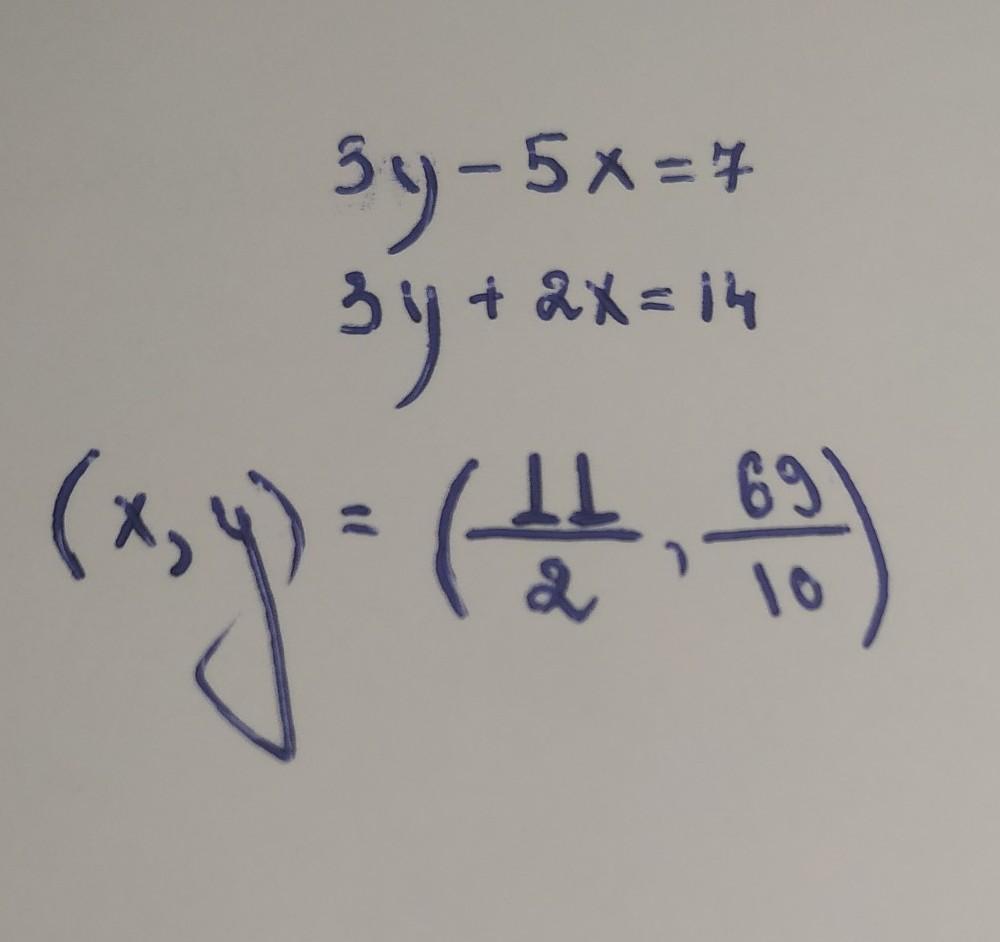 3y - 5x = 7
3y + 2x = 14
(x, y) = (11/2, 69/10)